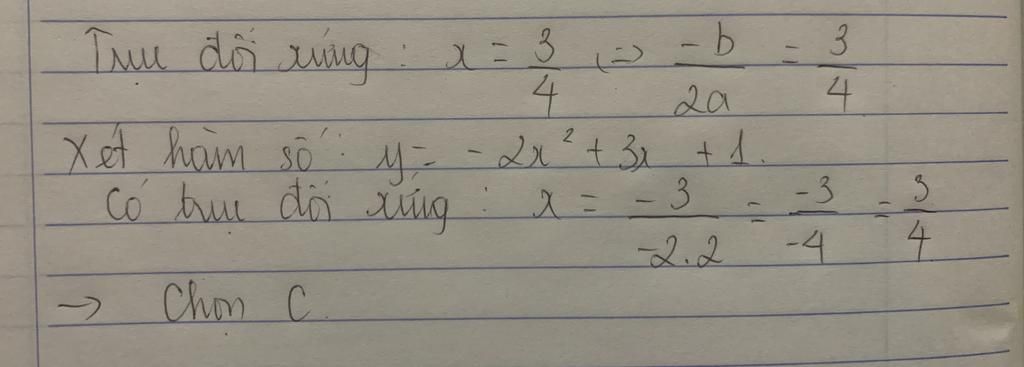 Trục đối xứng : x = 3/4 (=) -b/2a = 3/4
Xét hàm số : y = - 2x² + 3x + 1.
Có trục đối xứng : x = -3/-2.2 = -3/-4 = 3/4
→ Chọn C